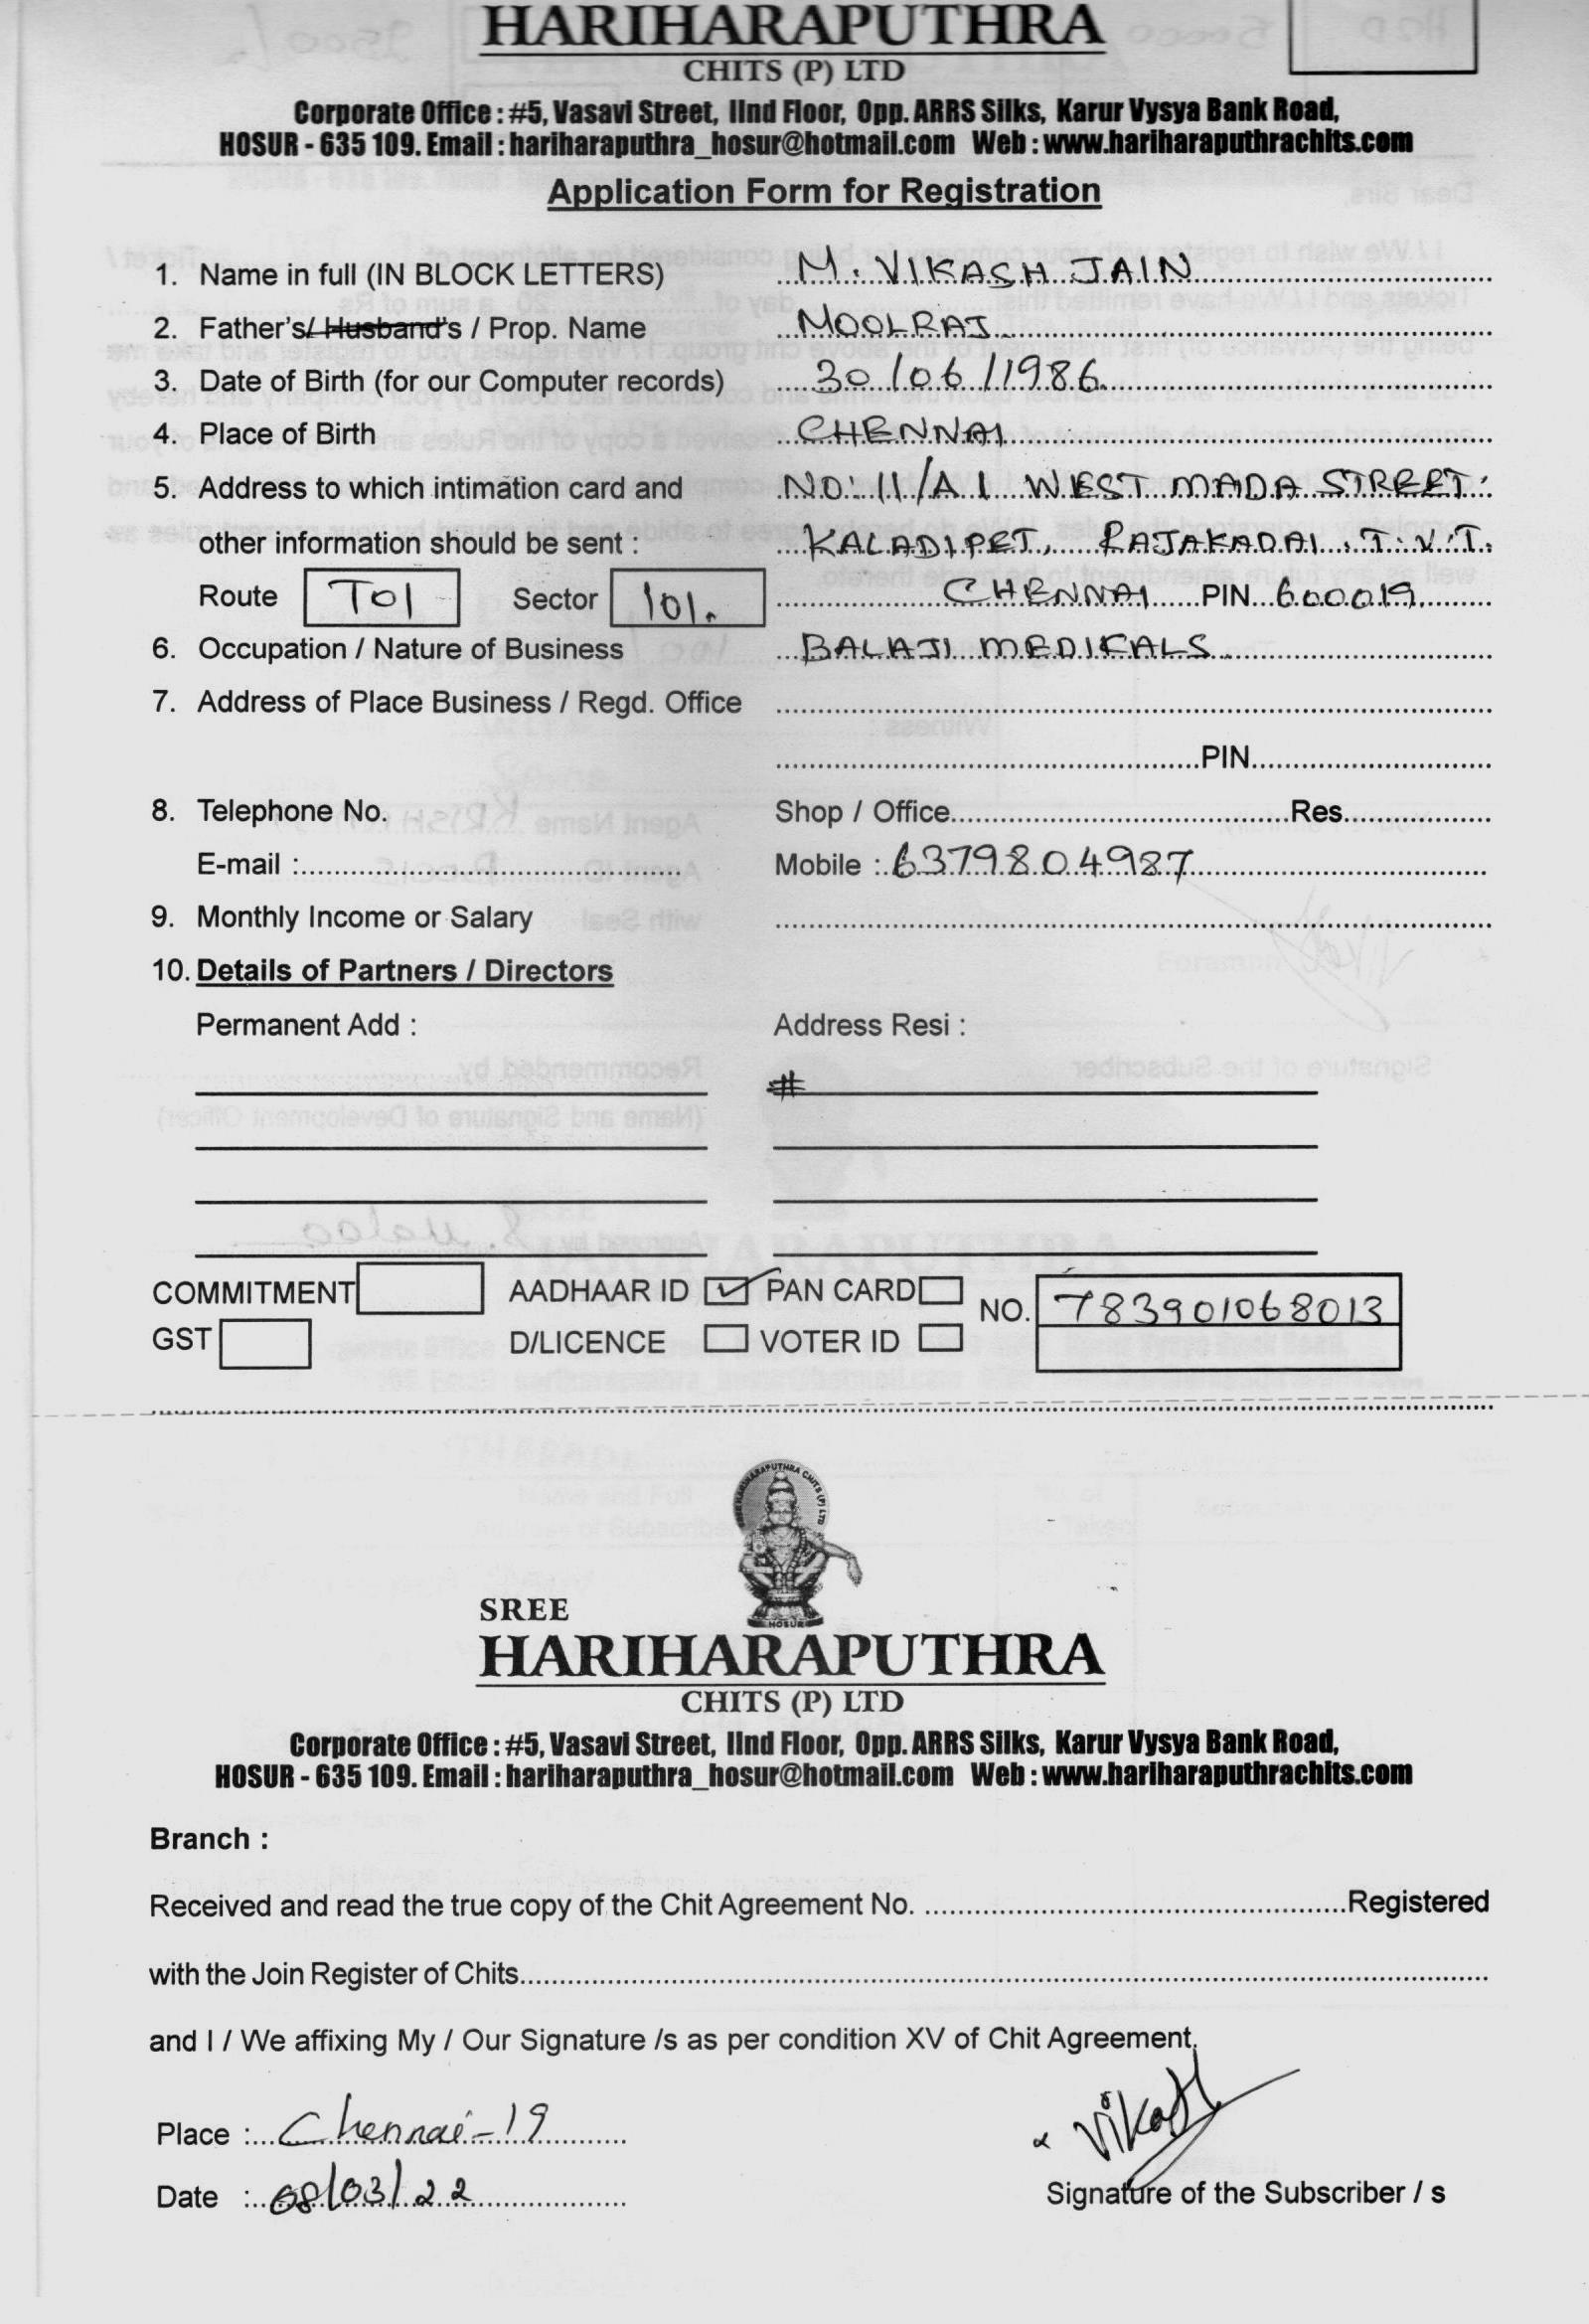 HARIHARAPUTHRA
CHITS (P) LTD
Corporate Office : #5, Vasavi Street, IInd Floor, Opp. ARRS Silks, Karur Vysya Bank Road,
HOSUR - 635 109. Email : hariharaputhra_hosur@hotmail.com Web : www.hariharaputhrachits.com
Application Form for Registration
1. Name in full (IN BLOCK LETTERS) M. VIKASH JAIN
2. Father's/ Husband's / Prop. Name MOOLRAJ
3. Date of Birth (for our Computer records) 30/06/1986
4. Place of Birth CHENNAI
5. Address to which intimation card and NO: 11/A1 WEST MADA STREET.
other information should be sent : KALADIPET, RAJAKADAI. T.V.T.
Route T01 Sector 101. CHENNAI PIN 600019
6. Occupation / Nature of Business BALAJI MEDICALS
7. Address of Place Business / Regd. Office
PIN
8. Telephone No. Shop / Office Res.
E-mail : Mobile : 6379804987
9. Monthly Income or Salary
10. Details of Partners / Directors
Permanent Add : Address Resi :
#
COMMITMENT AADHAAR ID ✓ PAN CARD NO. 783901068013
GST D/LICENCE VOTER ID
SREE HARIHARAPUTHRA CHITS (P) LTD
HOSUR
SREE
HARIHARAPUTHRA
CHITS (P) LTD
Corporate Office : #5, Vasavi Street, IInd Floor, Opp. ARRS Silks, Karur Vysya Bank Road,
HOSUR - 635 109. Email : hariharaputhra_hosur@hotmail.com Web : www.hariharaputhrachits.com
Branch :
Received and read the true copy of the Chit Agreement No. Registered
with the Join Register of Chits
and I / We affixing My / Our Signature /s as per condition XV of Chit Agreement.
Place : Chennai-19
Vikash
Date : 08/03/22
Signature of the Subscriber / s